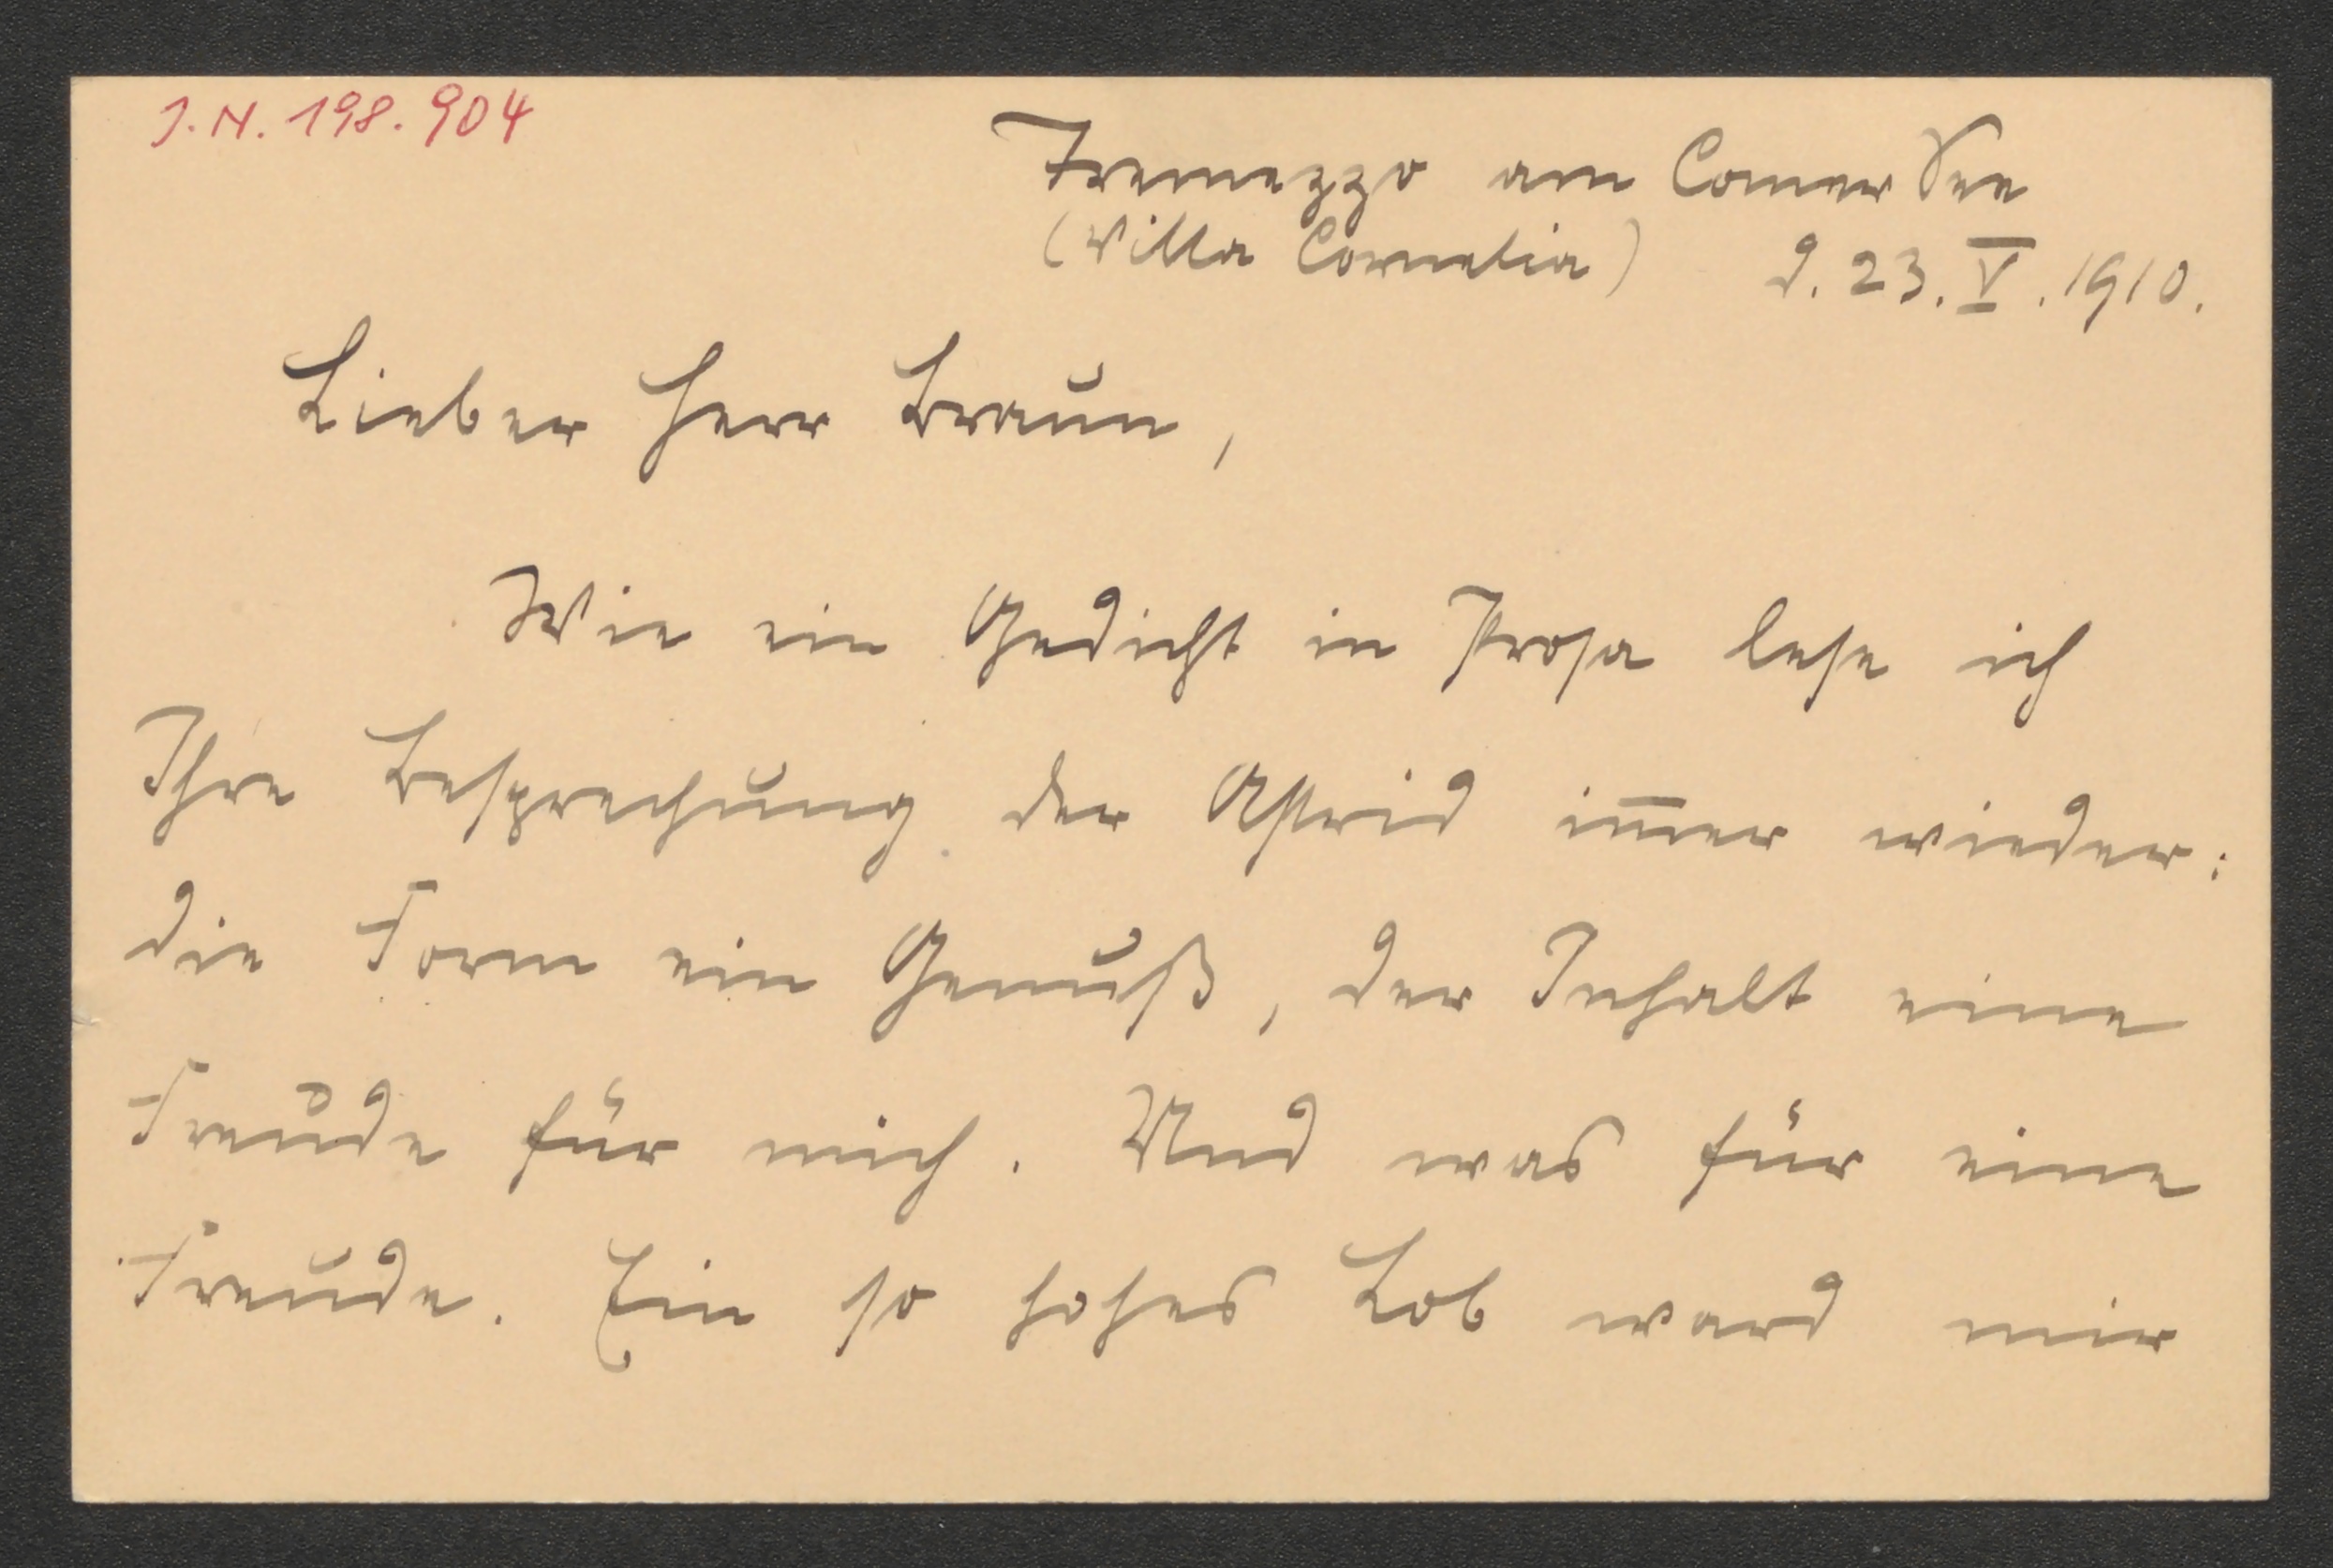 J.N. 198.904
Tremezzo am Comer See
(Villa Cornelia) d. 23. V. 1910.
Lieber Herr Braun,
Wie ein Gedicht in Prosa lese ich
Ihre Besprechung der Astrid im̅er wieder:
die Form ein Genuß, der Inhalt eine
Freude für mich. Und was für eine
Freude. Ein so hohes Lob ward mir